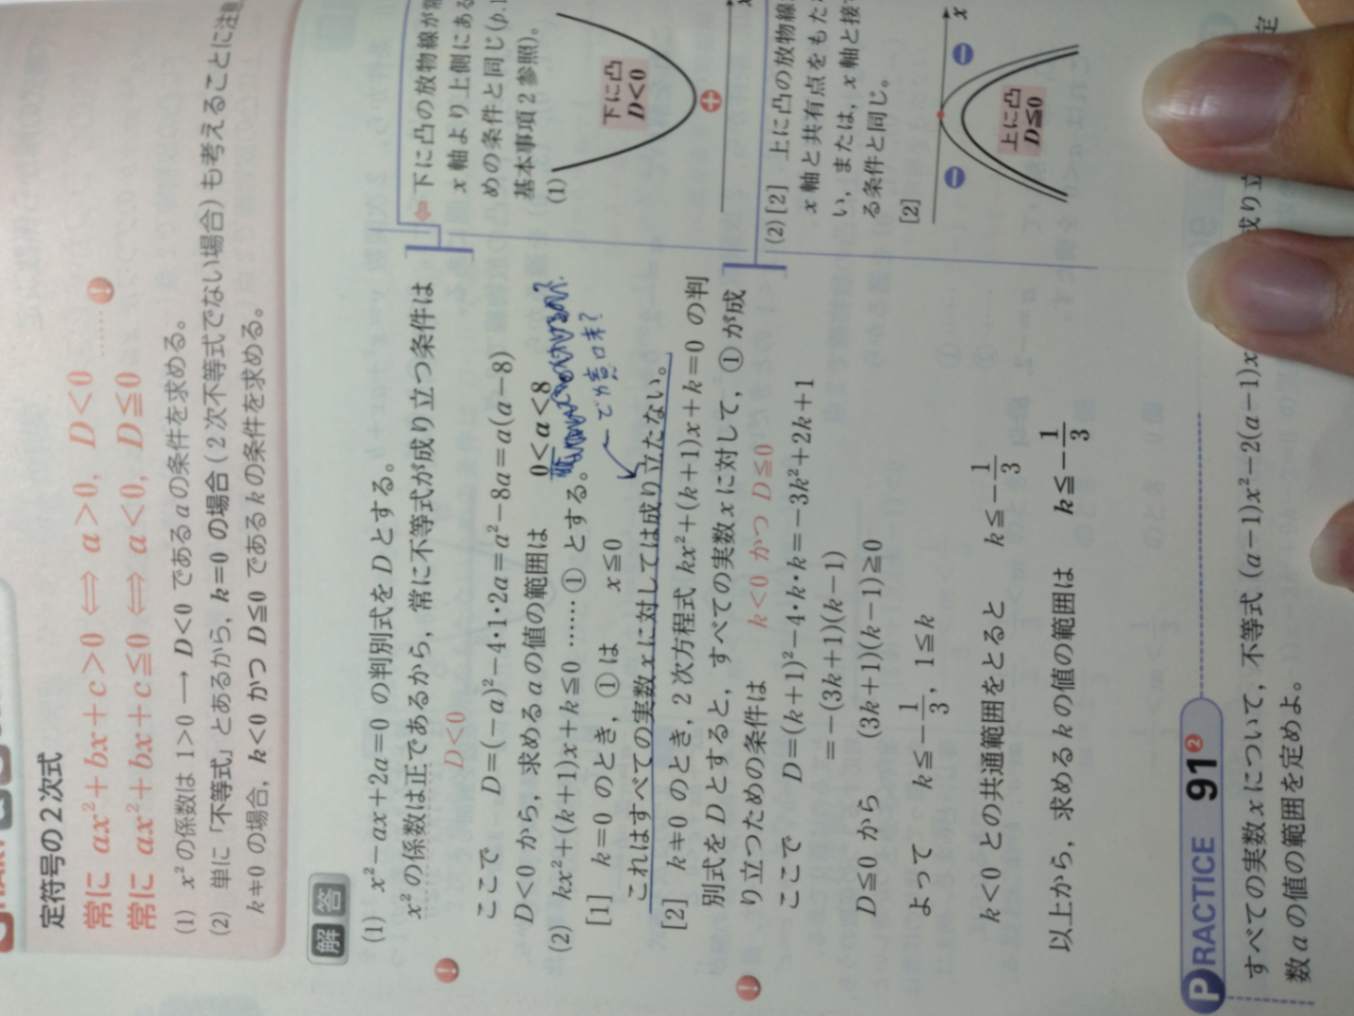 定符号の2次式
常に ax²+bx+c>0 ⇔ a>0, D<0
常に ax²+bx+c≦0 ⇔ a<0, D≦0 ……!
(1) x²の係数は 1>0 → D<0 であるaの条件を求める。
(2) 単に「不等式」とあるから，k=0 の場合(2次不等式でない場合)も考えることに注意
k≠0 の場合，k<0 かつ D≦0 であるkの条件を求める。
解答
(1) x²−ax+2a=0 の判別式をDとする。
x²の係数は正であるから，常に不等式が成り立つ条件は
! D<0
ここで D=(−a)²−4・1・2a=a²−8a=a(a−8)
D<0 から，求めるaの値の範囲は 0<a<8
(2) kx²+(k+1)x+k≦0 ……① とする。
[1] k=0 のとき，①は x≦0
これはすべての実数xに対しては成り立たない。
← どんな意味?
[2] k≠0 のとき，2次方程式 kx²+(k+1)x+k=0 の判
別式をDとすると，すべての実数xに対して，①が成
! り立つための条件は k<0 かつ D≦0
ここで D=(k+1)²−4・k・k=−3k²+2k+1
=−(3k+1)(k−1)
D≦0 から (3k+1)(k−1)≧0
よって k≦−1/3, 1≦k
k<0 との共通範囲をとると k≦−1/3
以上から，求めるkの値の範囲は k≦−1/3
⇐ 下に凸の放物線が常
x軸より上側にある
めの条件と同じ(p.1
基本事項2参照)。
(1)
下に凸
D<0
+
x
(2)[2] 上に凸の放物線
x軸と共有点をもた
い，または，x軸と接す
る条件と同じ。
[2]
− −
x
上に凸
D≦0
PRACTICE 91②
すべての実数xについて，不等式 (a−1)x²−2(a−1)x 成り立 定
数aの値の範囲を定めよ。